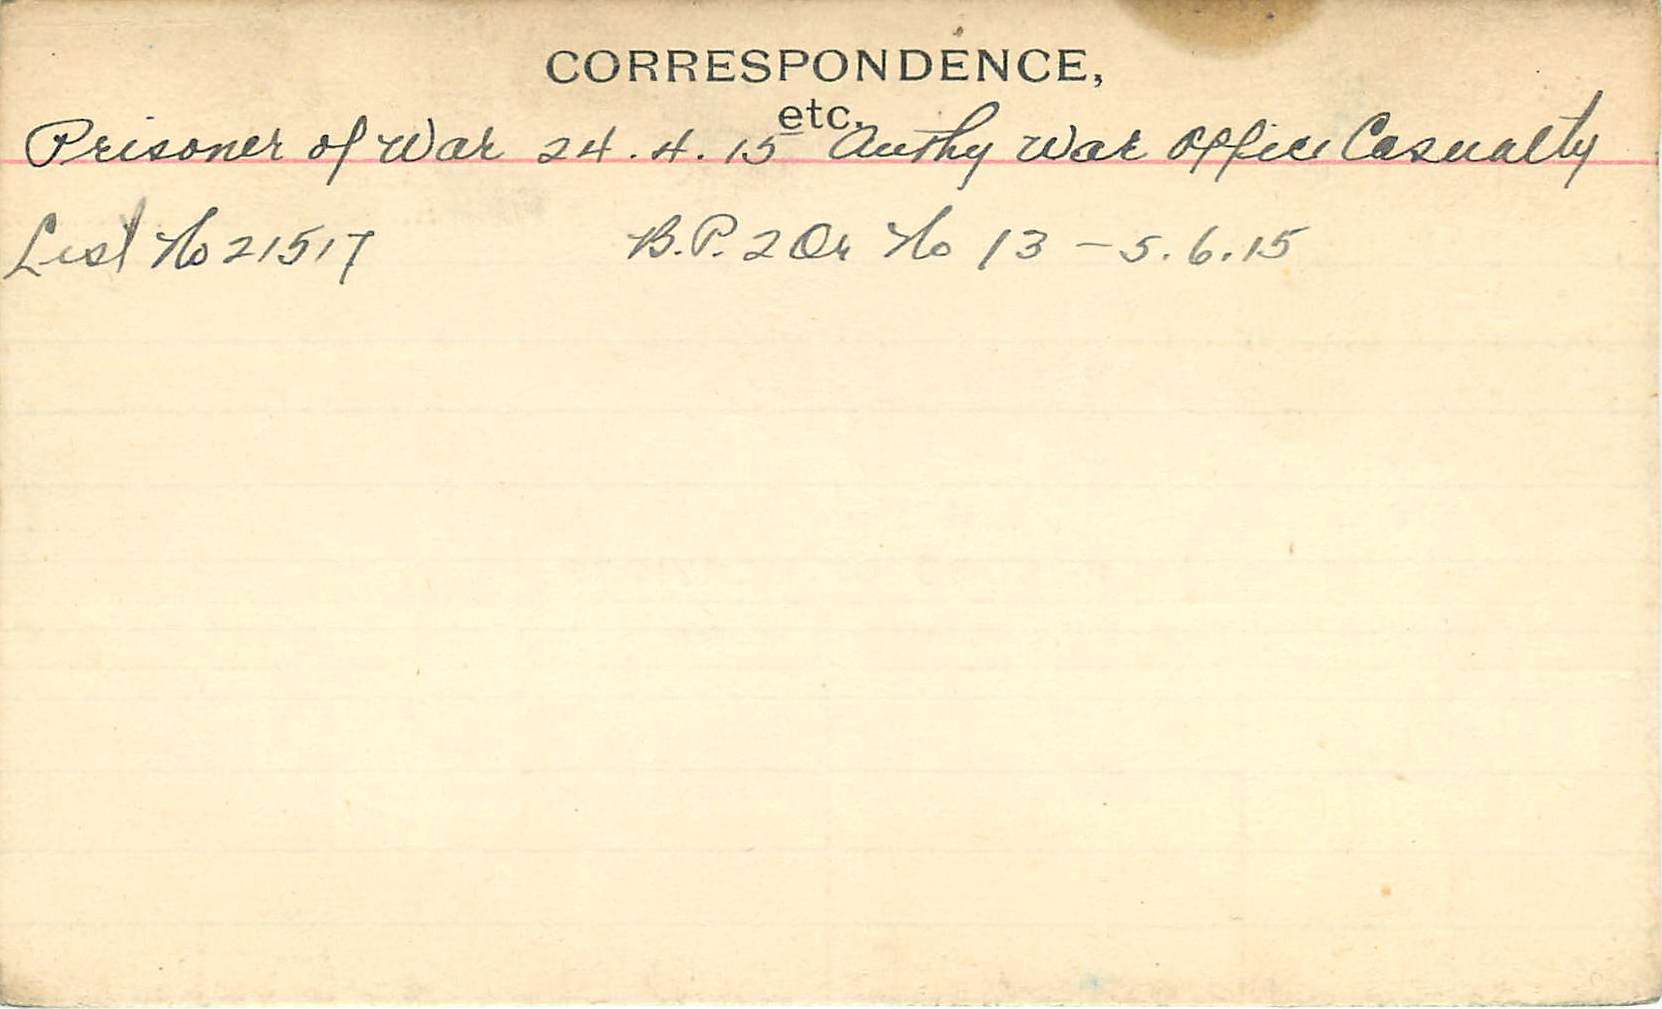 CORRESPONDENCE,
etc.
Prisoner of War 24.4.15 Authy War Office Casualty
List No 21517 B.P. 2 Or No 13 - 5.6.15